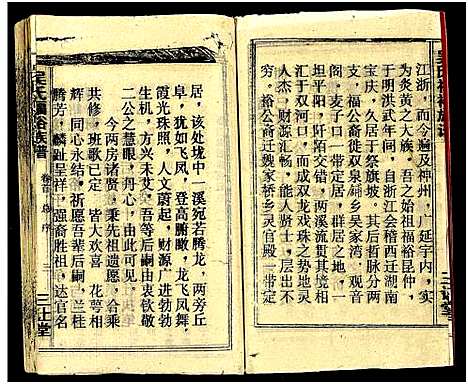 江浙,而今遍及神州,广延宇内,实
为炎黄之大族。吾之始祖福裕昆仲,
于明洪武年间,自浙江会稽西迁湖南
宝庆,久居于祭旗坡。其后哲脉分两
支,福公裔徙双泉铺乡吴家湾,观音
阁,麦子口一带定居,群居之地,一
坦平阳,阡陌交错,两溪流贯其境,
汇于双河口,而成双龙戏珠之势,地灵
人杰,财源汇畅,一时能人贤士,层出不
穷。裕公裔迁魏家桥乡灵官殿一带定
居,该处垅中一溪宛若腾龙,两旁丘
阜,犹如飞凤,登高俯瞰,龙飞凤舞,
霞光珠照,人文蔚起,财源广进勃勃
生机,方兴未艾。吾等后嗣由衷钦敬
二公之慧眼,丹心,由此可鉴。
今两房诸贤,秉先祖遗愿,合乘
共修,班歌已定,皆大欢喜,花萼相
辉,同心永结。祈愿吾辈后嗣,兰桂
腾芳,麟趾呈祥,强裔胜祖,达官名
吴氏福裕族谱
卷首 总序
二
三让堂
三让堂